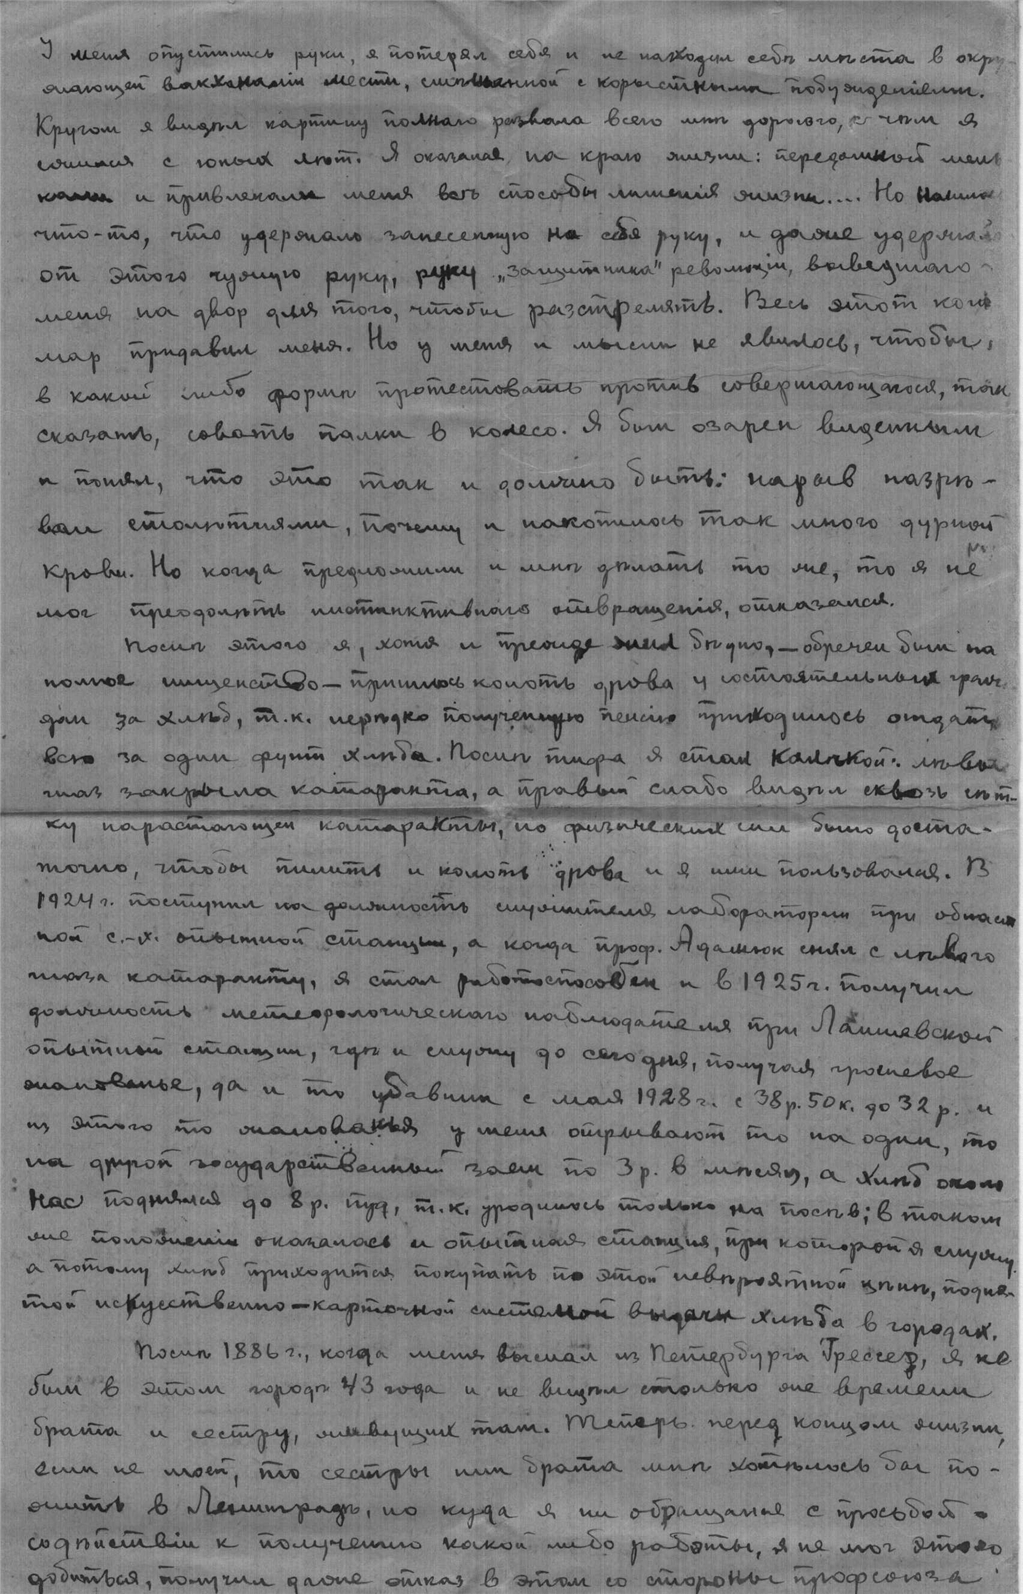 У меня опустились руки, я потерял себя и не находил себѣ мѣста в окру-
жающей вакханаліи мести, смѣшенной с корыстными побужденіями.
Кругом я видѣл картину полнаго развала всего мнѣ дорогого, с чѣм я
сжился с юных лѣт. Я оказался на краю жизни: передо мной
и привлекали меня всѣ способы лишенія жизни.... Но нашлось
что-то, что удержало занесенную на себя руку, и даже удержало
от этого чужую руку, руку „защитника" революціи, выведшаго
меня на двор для того, чтобы разстрелять. Весь этот кош-
мар придавил меня. Но у меня и мысли не явилось, чтобы,
в какой либо формѣ протестовать против совершающагося, так
сказать, совать палки в колесо. Я был озарен виденным
и понял, что это так и должно быть: нарыв назрѣ-
вал столѣтиями, почему и накопилось так много дурной
крови. Но когда предложили и мнѣ дѣлать то же, то я не
мог преодолѣть инстинктивнаго отвращенія, отказался.
Послѣ этого я, хотя и прежде жил бѣдно, — обречен был на
полное нищенство — пришлось колоть дрова у состоятельных граж-
дан за хлѣб, т.к. нерѣдко полученную пенсію приходилось отдать
всю за один фунт хлѣба. Послѣ тифа я стал калѣкой: лѣвый
глаз закрыла катаракта, а правый слабо видѣл сквозь сѣт-
ку нарастающей катаракты, но физических сил было доста-
точно, чтобы пилить и колоть дрова и я ими пользовался. В
1924 г. поступил на должность служителя лаборатории при област-
ной с.-х. опытной станции, а когда проф. Адамюк снял с лѣваго
глаза катаракту, я стал работоспособен и в 1925 г. получил
должность метеорологическаго наблюдателя при Лаишевской
опытной станции, гдѣ и служу до сегодня, получая грошевое
жалованье, да и то убавили с мая 1928 г. с 38 р. 50 к. до 32 р. и
из этого то жалованья у меня отрывают то на один, то
на другой государственный заем по 3 р. в мѣсяц, а хлѣб около
нас поднялся до 8 р. пуд, т.к. уродилось только на посѣв; в таком
же положеніи оказалась и опытная станция, при которой я служу,
а потому хлѣб приходится покупать по этой невѣроятной цѣнѣ, подня-
той искусственно-карточной системой выдачи хлѣба в городах.
Послѣ 1886 г., когда меня выслал из Петербурга Грессер, я не
был в этом городѣ 43 года и не видѣл столько же времени
брата и сестру, живущих там. Теперь перед концом жизни,
если не моей, то сестры или брата мнѣ хотѣлось бы по-
жить в Ленинградѣ, но куда я ни обращался с просьбой о
содѣйствіи к получению какой либо работы, я не мог этого
добиться, получил даже отказ в этом со стороны профсоюза